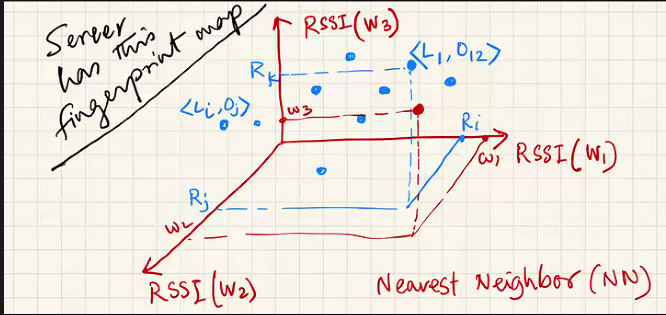 Server
has this
fingerprint map
RSSI(W3)
Rk
<L1, O12>
<Li, Oj>
w3
Ri
w1
RSSI(W1)
Rj
w2
RSSI(W2)
Nearest Neighbor (NN)